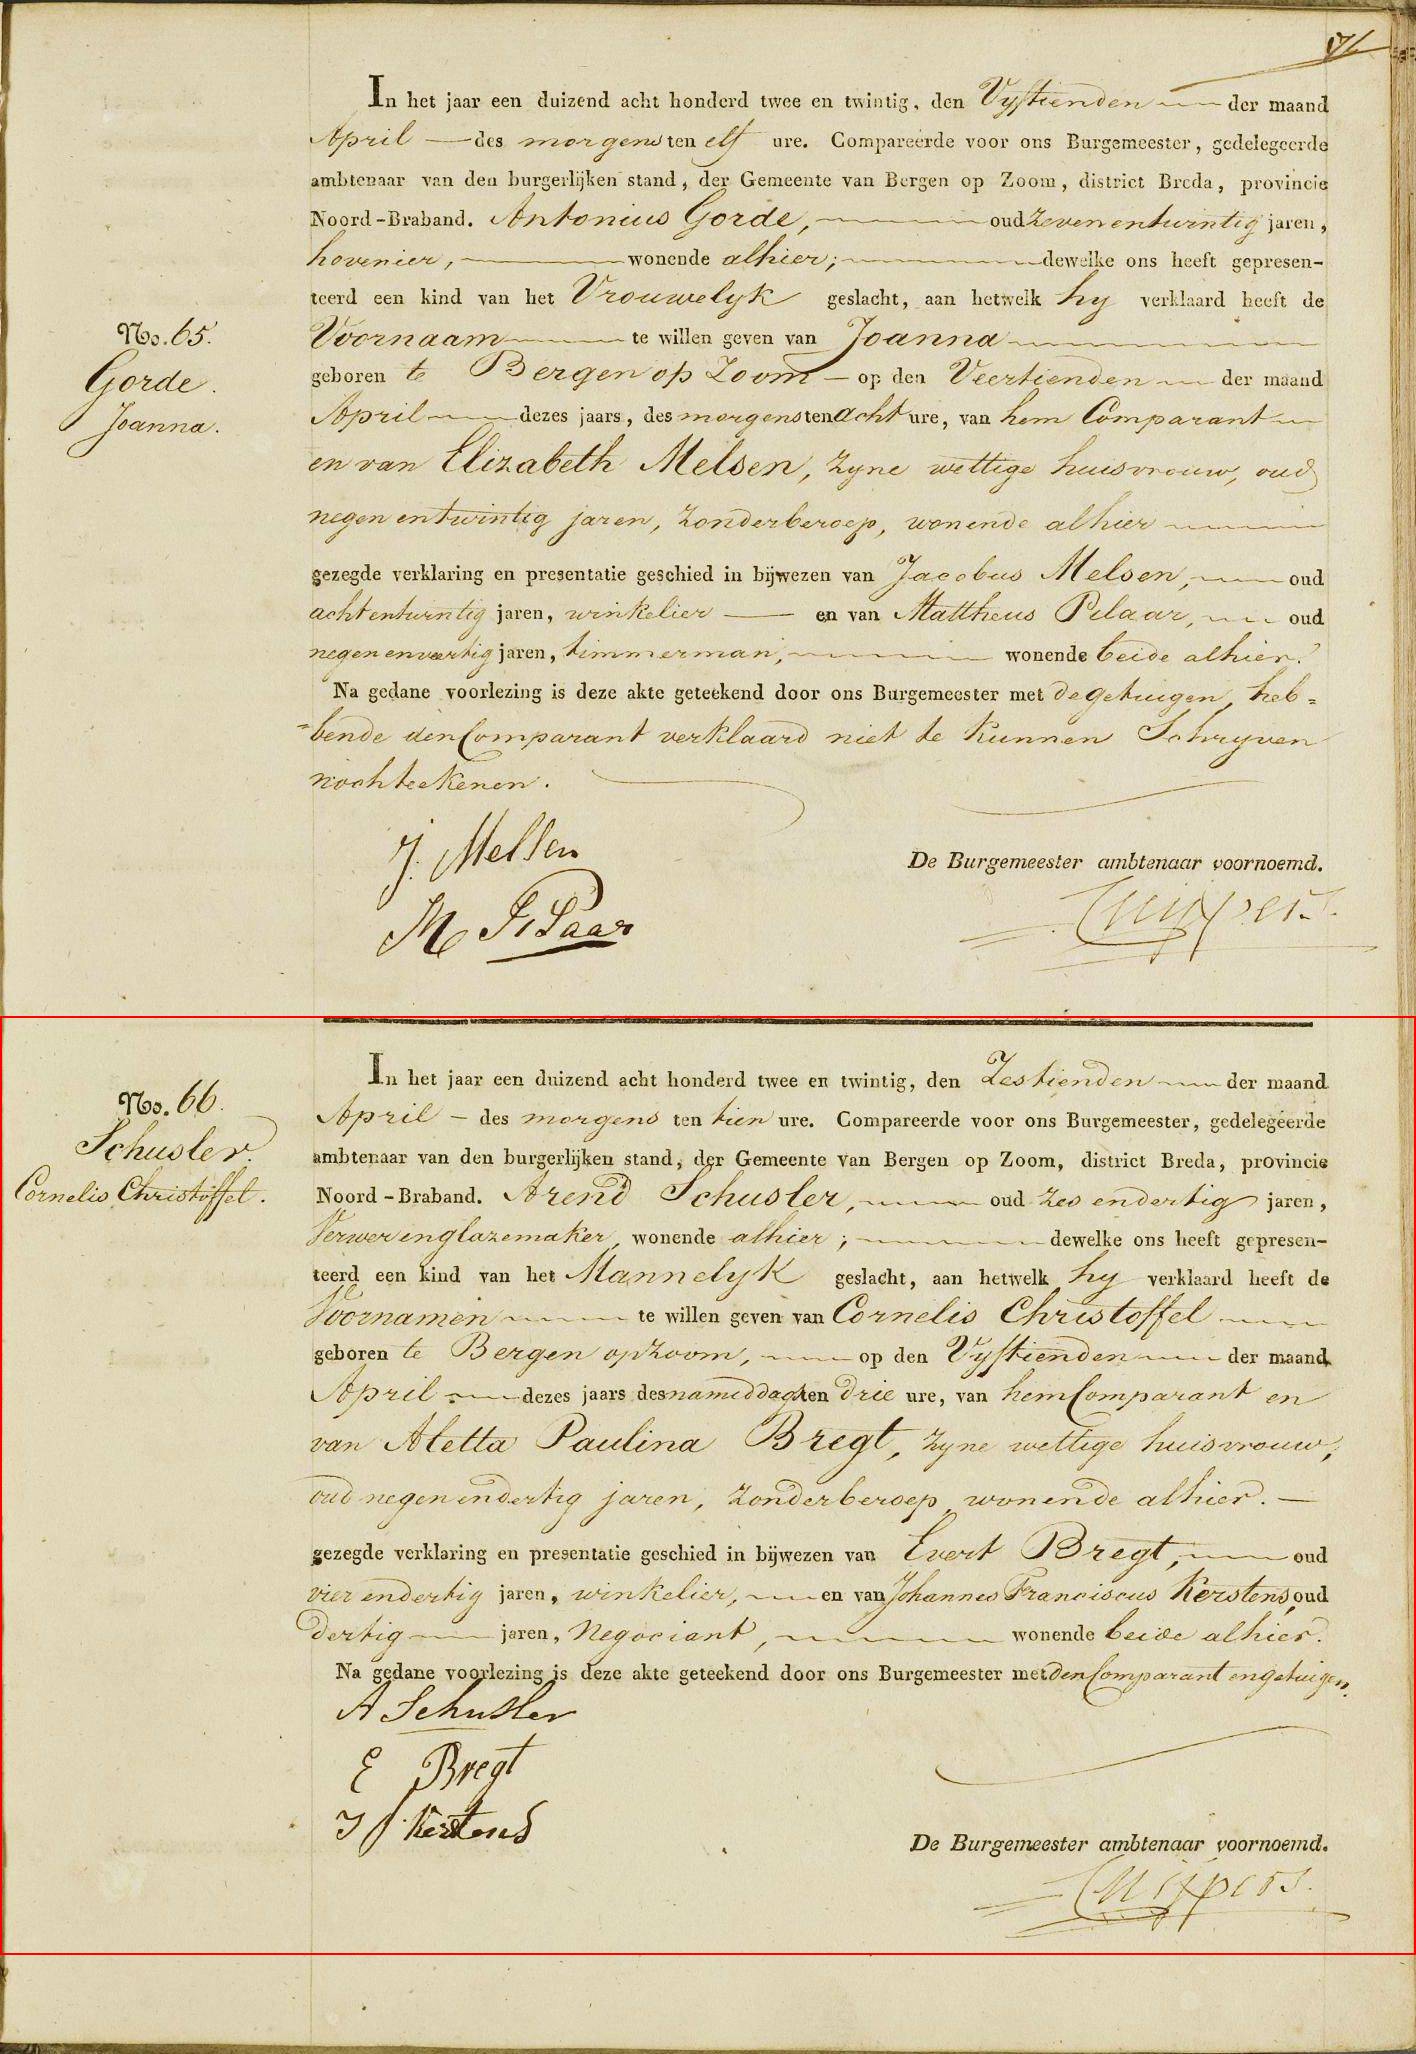 In het jaar een duizend acht honderd twee en twintig, den Vyftienden der maand
April des morgens ten elf ure. Compareerde voor ons Burgemeester, gedelegeerde
ambtenaar van den burgerlijken stand, der Gemeente van Bergen op Zoom, district Breda, provincie
Noord-Braband. Antonius Gorde, oud zevenentwintig jaren,
hovenier, wonende alhier; dewelke ons heeft gepresen-
teerd een kind van het Vrouwelyk geslacht, aan hetwelk hy verklaard heeft de
No. 65.
Voornaam te willen geven van Joanna
Gorde.
geboren te Bergen op Zoom op den Veertienden der maand
Joanna.
April dezes jaars, des morgens ten acht ure, van hem Comparant
en van Elizabeth Melsen, zyne wettige huisvrouw, oud
negen entwintig jaren, zonderberoep, wonende alhier
gezegde verklaring en presentatie geschied in bijwezen van Jacobus Melsen, oud
achtentwintig jaren, winkelier en van Mattheus Pilaar, oud
negen enveertig jaren, timmerman, wonende beide alhier.
Na gedane voorlezing is deze akte geteekend door ons Burgemeester met de getuigen, heb=
=bende den Comparant verklaard niet te kunnen Schryven
noch teekenen.
J. Melsen
De Burgemeester ambtenaar voornoemd.
M Pilaar
Cuijpers.
In het jaar een duizend acht honderd twee en twintig, den Zestienden der maand
No. 66.
April des morgens ten tien ure. Compareerde voor ons Burgemeester, gedelegeerde
Schusler.
ambtenaar van den burgerlijken stand, der Gemeente van Bergen op Zoom, district Breda, provincie
Cornelis Christoffel.
Noord-Braband. Arend Schusler, oud zes endertig jaren,
Verwer englazemaker, wonende alhier; dewelke ons heeft gepresen-
teerd een kind van het Mannelyk geslacht, aan hetwelk hy verklaard heeft de
Voornamen te willen geven van Cornelis Christoffel
geboren te Bergen opzoom, op den Vyftienden der maand
April dezes jaars des namiddags ten drie ure, van hem Comparant en
van Aletta Paulina Bregt, zyne wettige huisvrouw,
oud negen endertig jaren, zonderberoep, wonende alhier.
gezegde verklaring en presentatie geschied in bijwezen van Evert Bregt, oud
vier endertig jaren, winkelier, en van Johannes Franciscus Kerstens, oud
dertig jaren, Negociant, wonende beide alhier.
Na gedane voorlezing is deze akte geteekend door ons Burgemeester met den Comparant en getuigen.
A Schusler
E Bregt
J f Kerstens
De Burgemeester ambtenaar voornoemd.
Cuijpers.